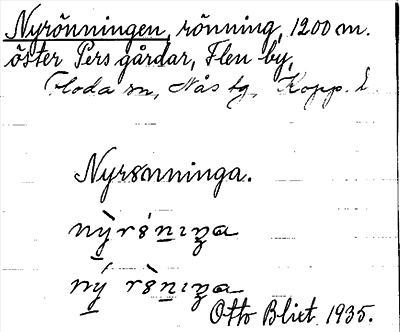 Nyrönningen, rönning, 1200 m.
öster Pers gårdar, Flen by,
Floda sn, Nås tg, Kopp. l.
Nyrsnninga.
Otto Blixt. 1935.